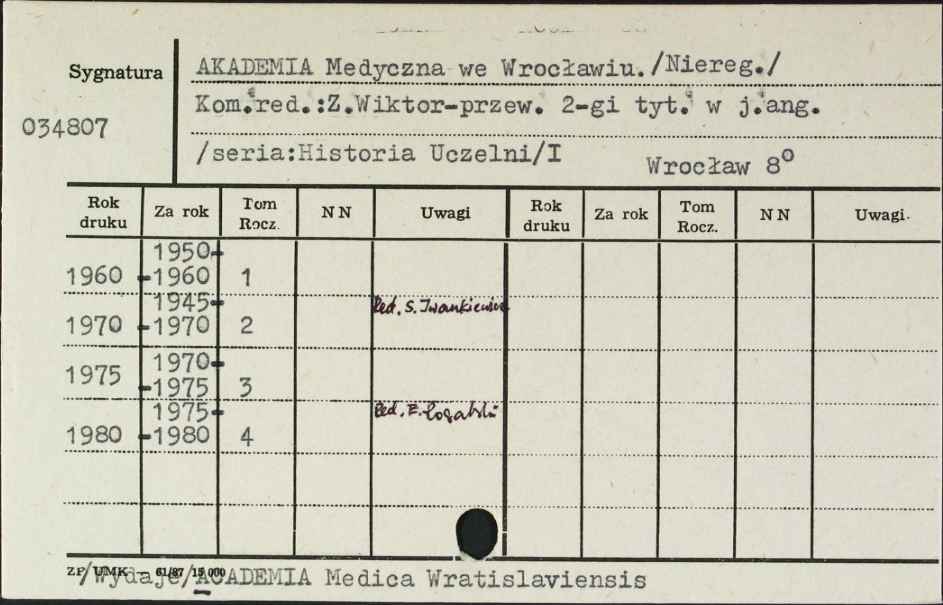 Sygnatura
AKADEMIA Medyczna we Wrocławiu./Niereg./
Kom.red.:Z.Wiktor-przew. 2-gi tyt. w j.ang.
034807
/seria:Historia Uczelni/I
Wrocław 8º
Rok druku Za rok Tom Rocz. NN Uwagi Rok druku Za rok Tom Rocz. NN Uwagi
1950-
1960 -1960 1
1945- Red. S. Iwankiewicz
1970 -1970 2
1970-
1975 -1975 3
1975- Red. E.
1980 -1980 4
ZP UMK - 61/87 15 000
/Wydaje/ACADEMIA Medica Wratislaviensis